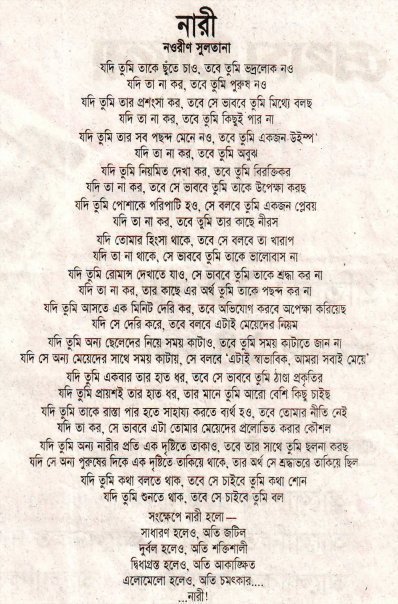 নারী
নওরীণ সুলতানা
যদি তুমি তাকে ছুঁতে চাও, তবে তুমি ভদ্রলোক নও
যদি তা না কর, তবে তুমি পুরুষ নও
যদি তুমি তার প্রশংসা কর, তবে সে ভাববে তুমি মিথ্যে বলছ
যদি তা না কর, তবে তুমি কিছুই পার না
যদি তুমি তার সব পছন্দ মেনে নও, তবে তুমি একজন উইম্প'
যদি তা না কর, তবে তুমি অবুঝ
যদি তুমি নিয়মিত দেখা কর, তবে তুমি বিরক্তিকর
যদি তা না কর, তবে সে ভাববে তুমি তাকে উপেক্ষা করছ
যদি তুমি পোশাকে পরিপাটি হও, সে বলবে তুমি একজন প্লেবয়
যদি তা না কর, তবে তুমি তার কাছে নীরস
যদি তোমার হিংসা থাকে, তবে সে বলবে তা খারাপ
যদি তা না থাকে, সে ভাববে তুমি তাকে ভালোবাস না
যদি তুমি রোমান্স দেখাতে যাও, সে ভাববে তুমি তাকে শ্রদ্ধা কর না
যদি তা না কর, তার কাছে এর অর্থ তুমি তাকে পছন্দ কর না
যদি তুমি আসতে এক মিনিট দেরি কর, তবে অভিযোগ করবে অপেক্ষা করিয়েছ
যদি সে দেরি করে, তবে বলবে এটাই মেয়েদের নিয়ম
যদি তুমি অন্য ছেলেদের নিয়ে সময় কাটাও, তবে তুমি সময় কাটাতে জান না
যদি সে অন্য মেয়েদের সাথে সময় কাটায়, সে বলবে 'এটাই স্বাভাবিক, আমরা সবাই মেয়ে'
যদি তুমি একবার তার হাত ধর, তবে সে ভাববে তুমি ঠাণ্ডা প্রকৃতির
যদি তুমি প্রায়শই তার হাত ধর, তার মানে তুমি আরো বেশি কিছু চাইছ
যদি তুমি তাকে রাস্তা পার হতে সাহায্য করতে ব্যর্থ হও, তবে তোমার নীতি নেই
যদি তা কর, সে ভাববে এটা তোমার মেয়েদের প্রলোভিত করার কৌশল
যদি তুমি অন্য নারীর প্রতি এক দৃষ্টিতে তাকাও, তবে তার সাথে তুমি ছলনা করছ
যদি সে অন্য পুরুষের দিকে এক দৃষ্টিতে তাকিয়ে থাকে, তার অর্থ সে শ্রদ্ধাভরে তাকিয়ে ছিল
যদি তুমি কথা বলতে থাক, তবে সে চাইবে তুমি কথা শোন
যদি তুমি শুনতে থাক, তবে সে চাইবে তুমি বল
সংক্ষেপে নারী হলো—
সাধারণ হলেও, অতি জটিল
দুর্বল হলেও, অতি শক্তিশালী
দ্বিধাগ্রস্ত হলেও, অতি আকাঙ্ক্ষিত
এলোমেলো হলেও, অতি চমৎকার....
...নারী!